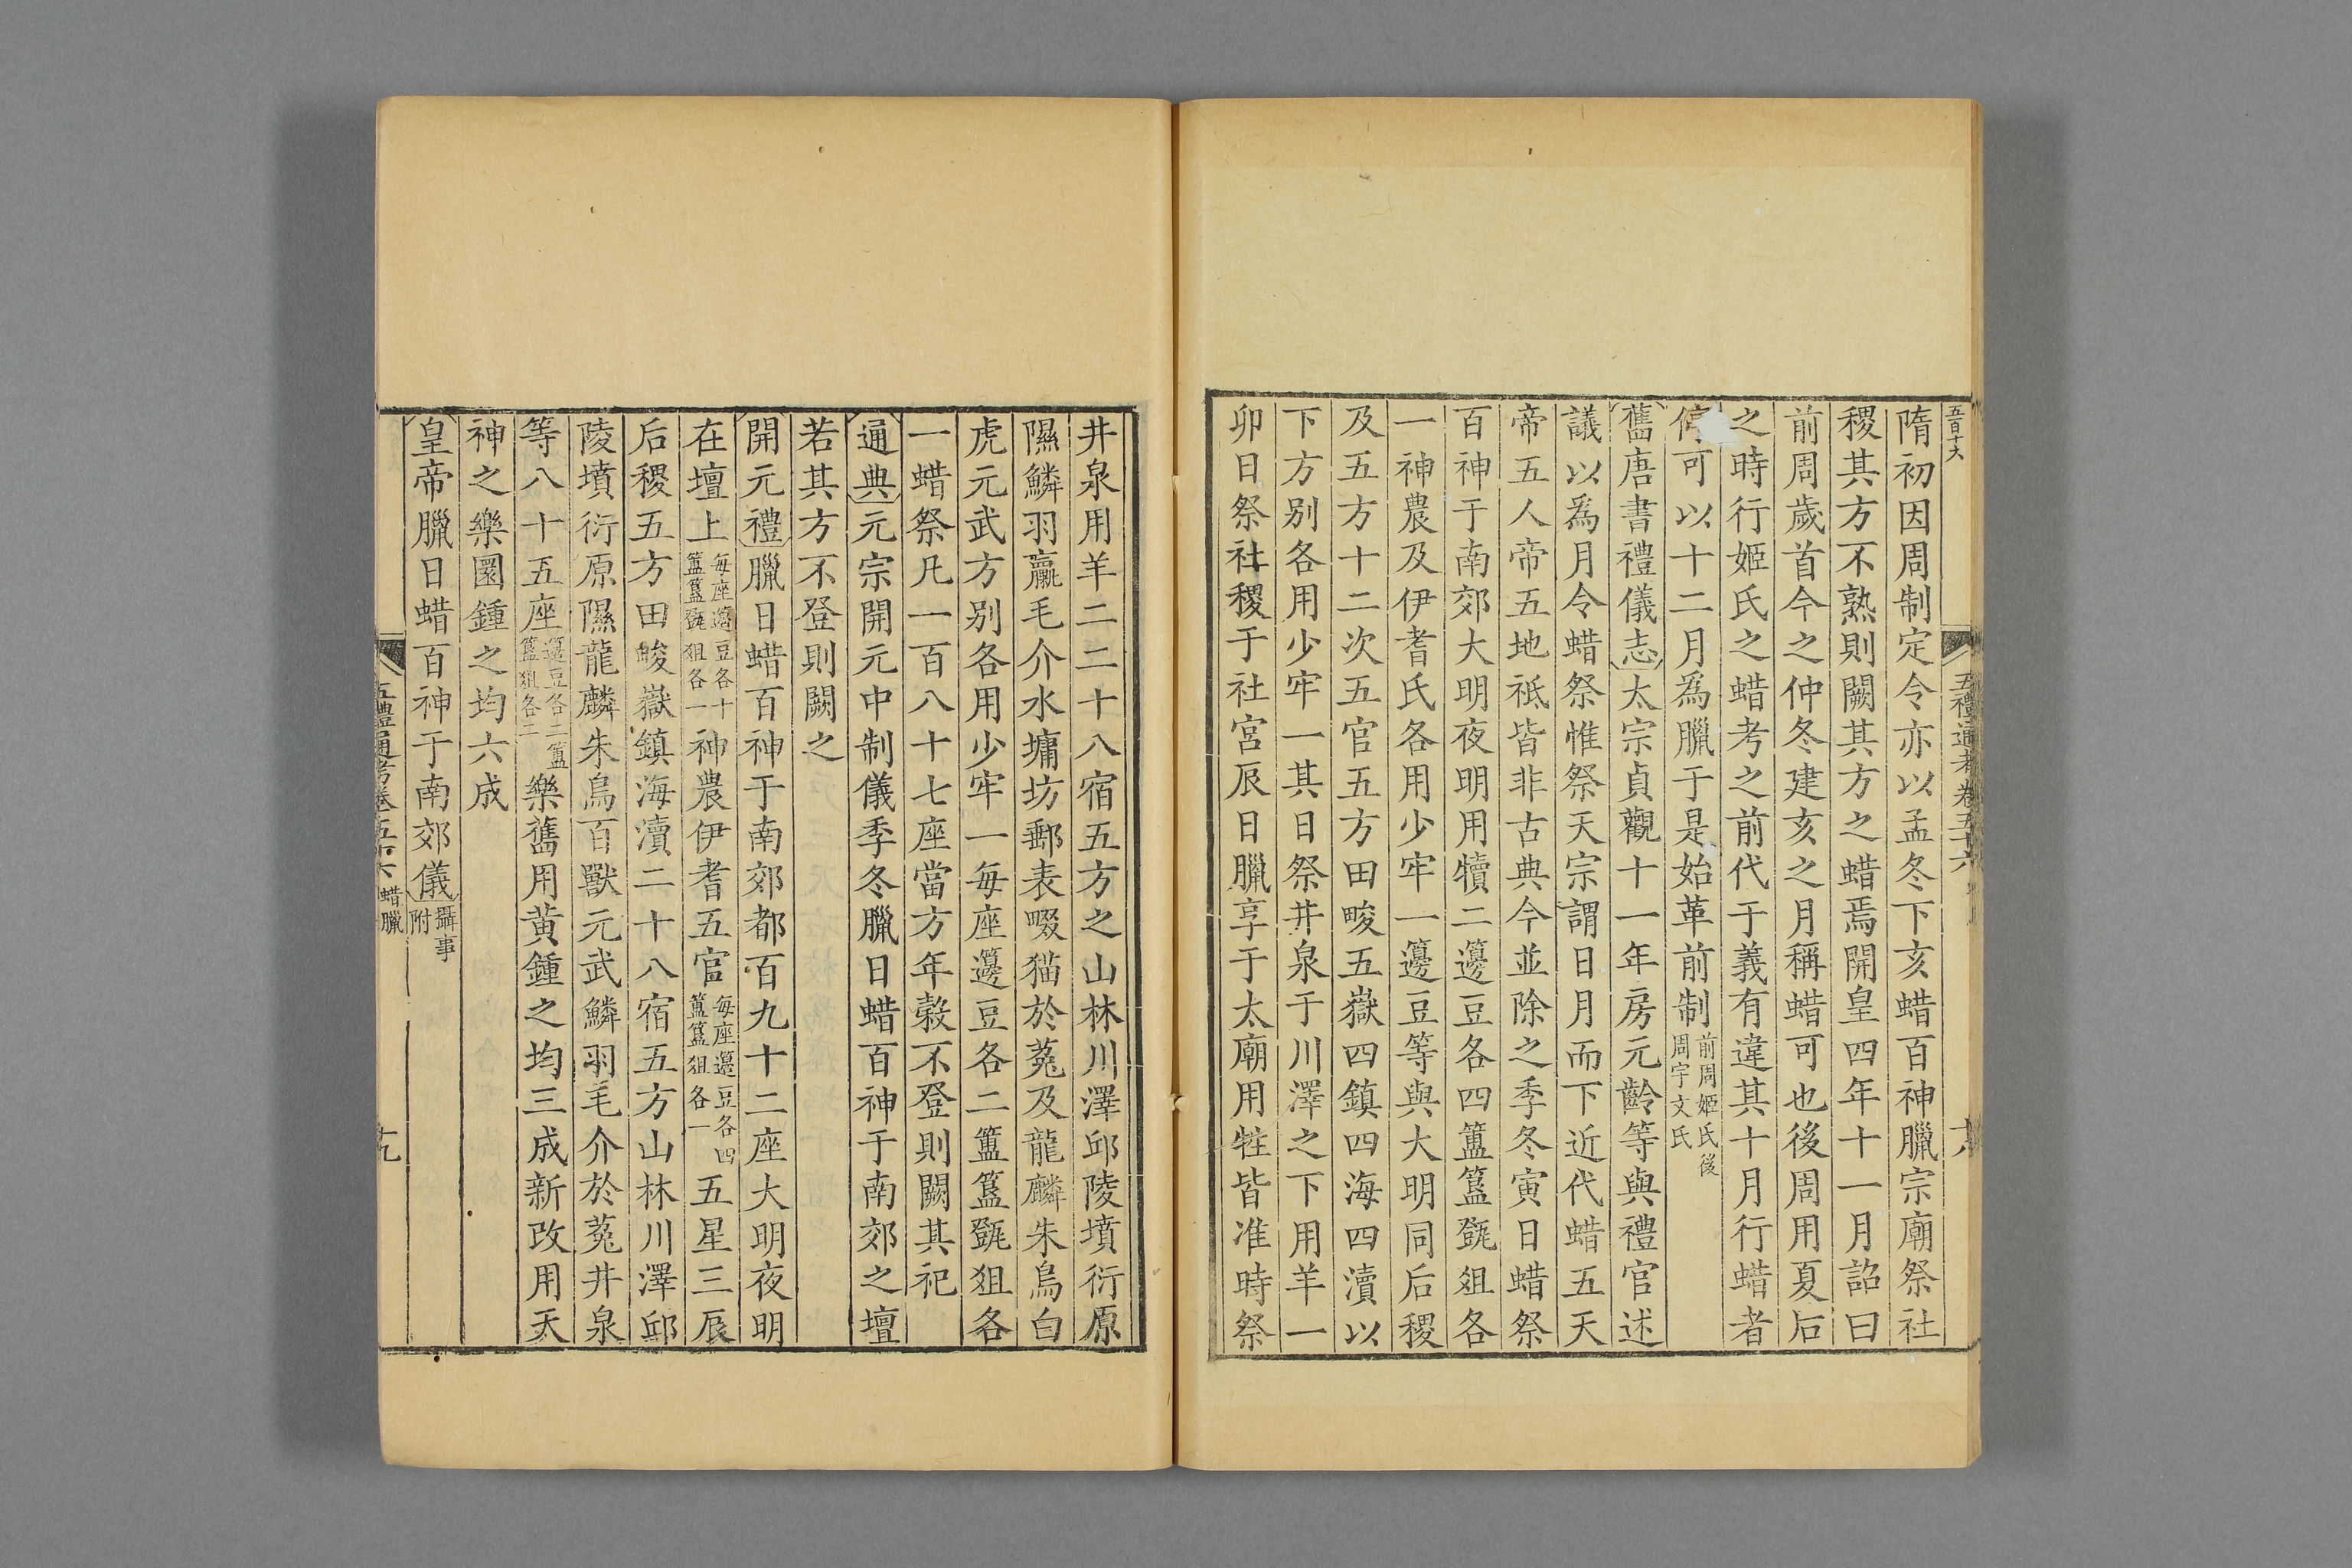 五百十六
五禮通考卷五十六
隋初因周制定令亦以孟冬下亥蜡百神臘宗廟祭社
稷其方不熟則闕其方之蜡焉開皇四年十一月詔曰
前周歲首今之仲冬建亥之月稱蜡可也後周用夏后
之時行姬氏之蜡考之前代于義有違其十月行蜡者
停可以十二月為臘于是始革前制前周姬氏後周宇文氏
舊唐書禮儀志太宗貞觀十一年房元齡等與禮官述
議以為月令蜡祭惟祭天宗謂日月而下近代蜡五天
帝五人帝五地祗皆非古典今並除之季冬寅日蜡祭
百神于南郊大明夜明用犢二籩豆各四簠簋㽅俎各
一神農及伊耆氏各用少牢一籩豆等與大明同后稷
及五方十二次五官五方田畯五嶽四鎮四海四瀆以
下方別各用少牢一其日祭井泉于川澤之下用羊一
卯日祭社稷于社宮辰日臘享于太廟用牲皆准時祭
井泉用羊二二十八宿五方之山林川澤邱陵墳衍原
隰鱗羽臝毛介水墉坊郵表畷猫於菟及龍麟朱鳥白
虎元武方別各用少牢一每座籩豆各二簠簋㽅俎各
一蜡祭凡一百八十七座當方年穀不登則闕其祀
通典元宗開元中制儀季冬臘日蜡百神于南郊之壇
若其方不登則闕之
開元禮臘日蜡百神于南郊都百九十二座大明夜明
在壇上每座籩豆各十簠簋㽅俎各一神農伊耆五官每座籩豆各四簠簋俎各一五星三辰
后稷五方田畯嶽鎮海瀆二十八宿五方山林川澤邱
陵墳衍原隰龍麟朱鳥百獸元武鱗羽毛介於菟井泉
等八十五座籩豆各二簠簋俎各一樂舊用黃鍾之均三成新改用天
神之樂圜鍾之均六成
皇帝臘日蜡百神于南郊儀攝事附
五禮通考卷五十六 蜡臘
十九